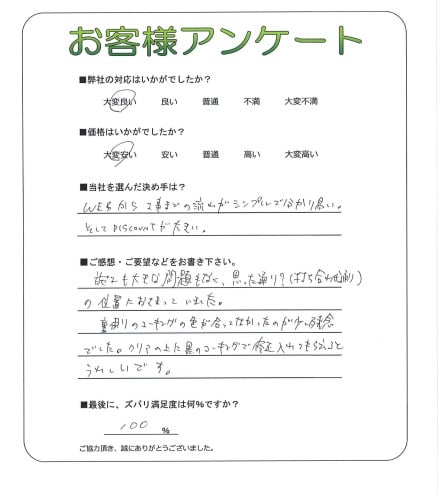 お客様アンケート
■弊社の対応はいかがでしたか？
大変良い 良い 普通 不満 大変不満
■価格はいかがでしたか？
大変安い 安い 普通 高い 大変高い
■当社を選んだ決め手は？
WEBから工事までの流れがシンプルで分かり易い。
そしてDISCOUNTが大きい。
■ご感想・ご要望などをお書き下さい。
施工も大きな問題もなく、思った通り？(打ち合わせ通り)
の位置におさまっていました。
裏周りのコーキングの色が合ってなかったのが少し残念
でした。クリアの上に黒のコーキングで修正入れてもらえると
うれしいです。
■最後に、ズバリ満足度は何％ですか？
100 ％
ご協力頂き、誠にありがとうございました。